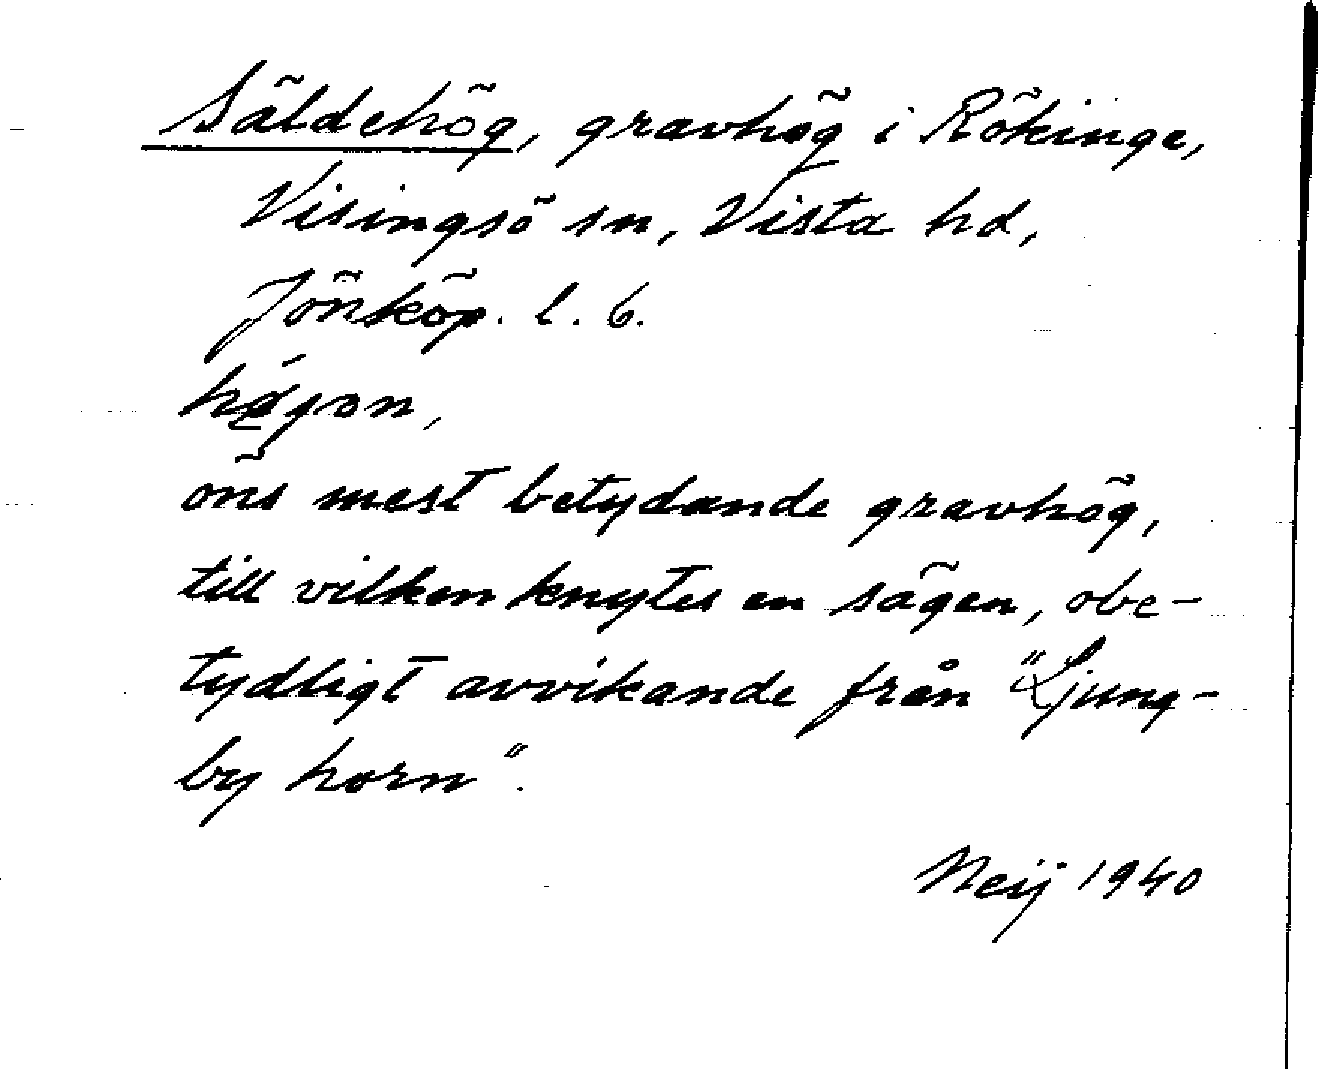 Säldehög, gravhög i Rökinge,
Visingsö sn, Vista hd,
Jönköp. l. 6.
öns mest betydande gravhög,
till vilken knytes en sägen, obe-
tydligt avvikande från "Ljung-
by horn".
Neij 1940